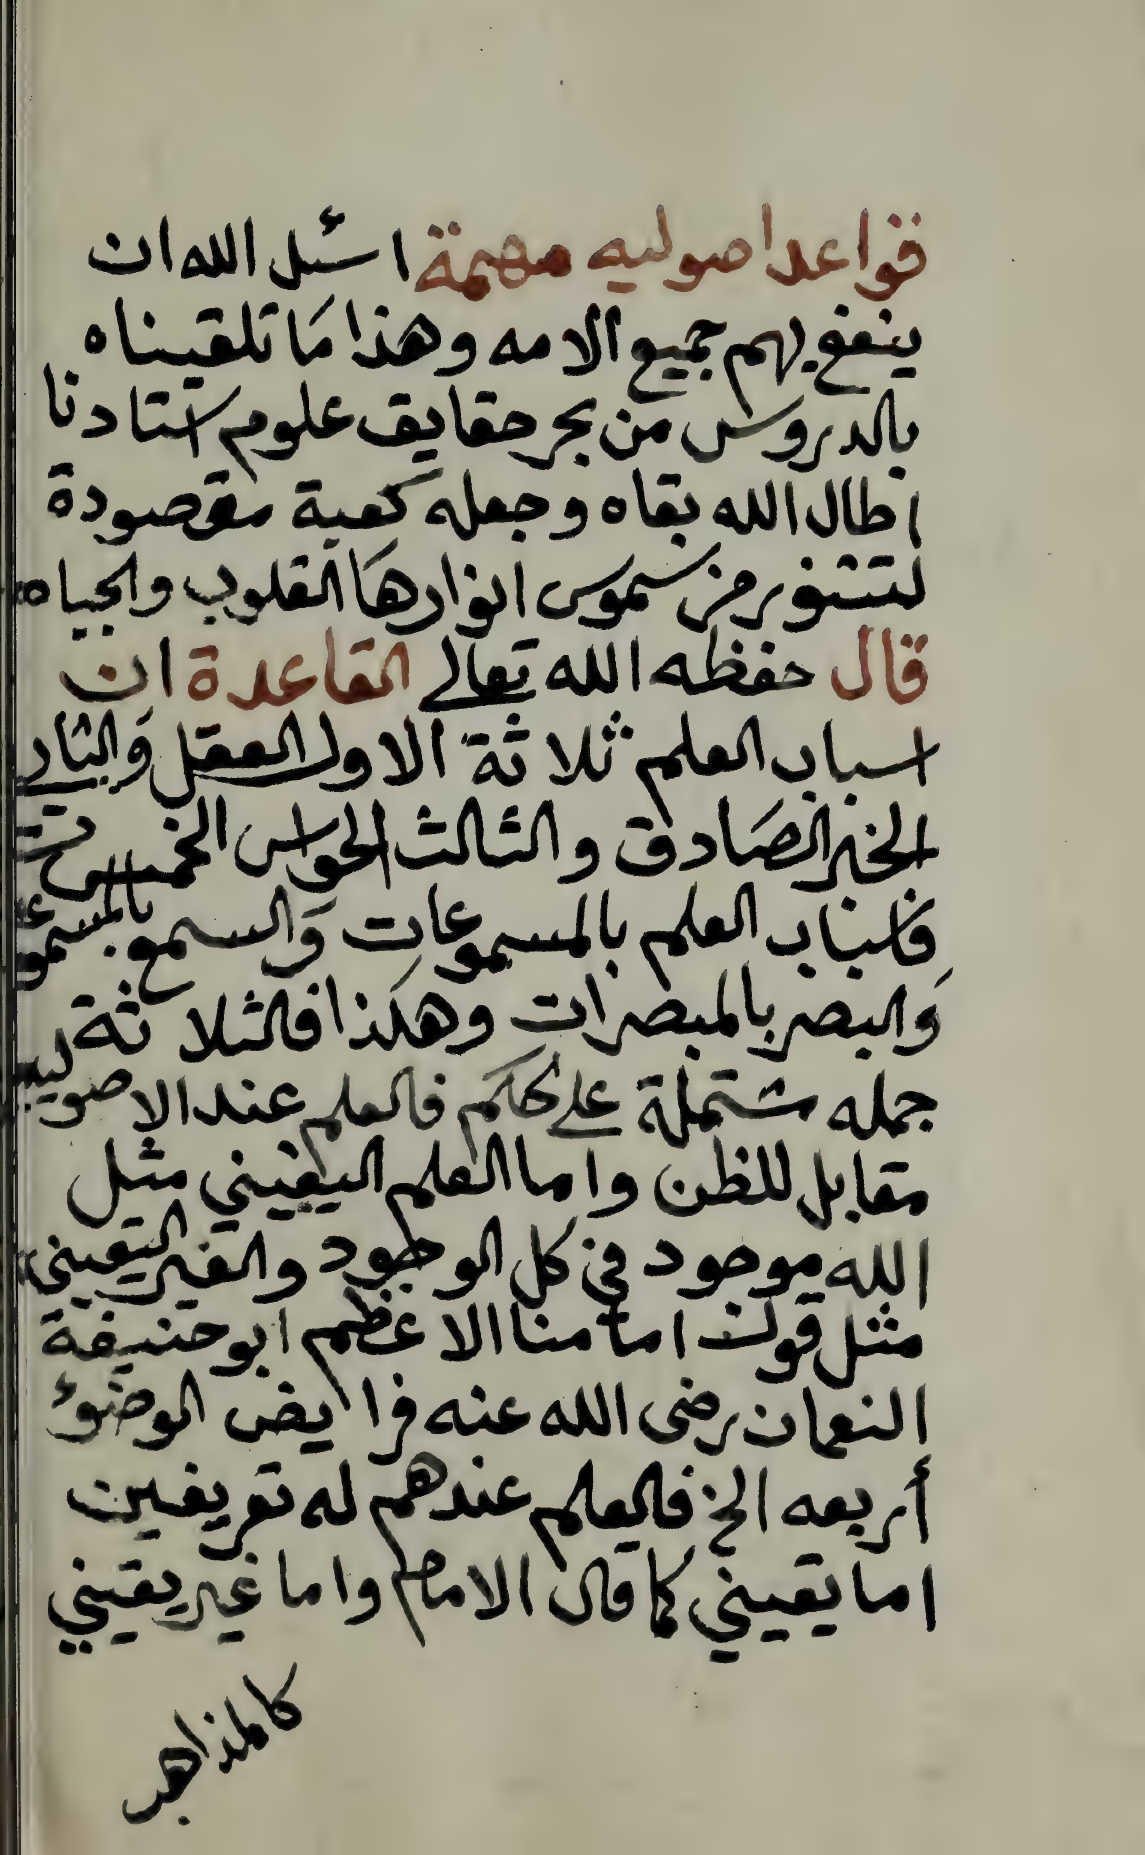 قواعد اصوليه مهمة اسئل الله ان
ينفع بهم جميع الامه وهذا ما تلقيناه
بالدروس من بحر حقايق علوم استادنا
اطال الله بقاه وجعله كعبة مقصودة
لتتنور من شموس انوارها القلوب والجباه
قال حفظه الله تعالى القاعدة ان
اسباب العلم ثلاثة الاول العقل والثاني
الخبر الصادق والثالث الحواس الخمس
فاسباب العلم بالمسموعات والسمع بالمسمو
والبصر بالمبصرات وهكذا فالثلاثة
جمله مشتملة على الحكم فالعلم عند الاصوليه
مقابل للظن واما العلم اليقيني مثل
الله موجود في كل الوجود والغير اليقيني
مثل قول امامنا الاعظم ابو حنيفة
النعمان رضى الله عنه فرايض الوضوء
أربعه الخ فالعلم عندهم له تعريفين
اما يقيني كما قال الامام واما غير يقيني
كالمذاهب